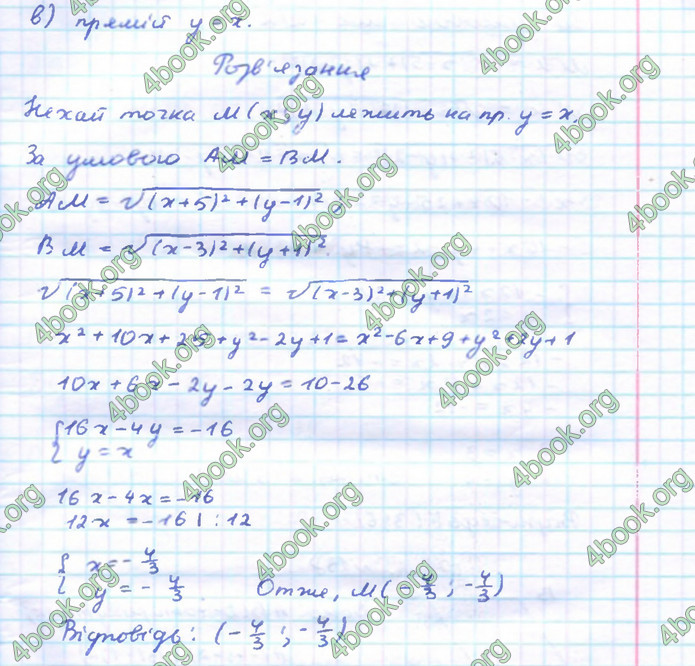 в) прямій y = x.
Розв'язання
Нехай точка M(x; y) лежить на пр. y = x.
За умового AM = BM.
AM = √(x+5)²+(y-1)²,
BM = √(x-3)²+(y+1)².
√(x+5)²+(y-1)² = √(x-3)²+(y+1)²
x²+10x+25+y²-2y+1=x²-6x+9+y²+2y+1
10x+6x-2y-2y=10-26
{16x-4y=-16
{ y=x
16x-4x=-16
12x =-16 | :12
{ x=-4/3
{ y=-4/3. Отже, M(-4/3; -4/3)
Відповідь: (-4/3; -4/3)
4book.org